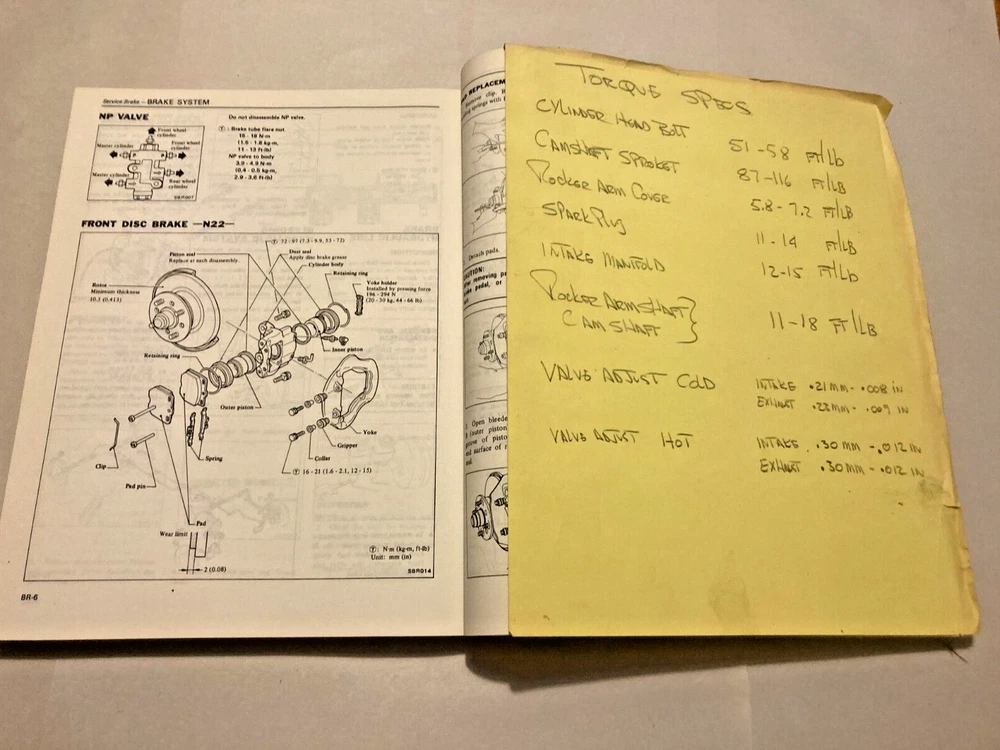 Service Brake — BRAKE SYSTEM
NP VALVE
Do not disassemble NP valve.
Front wheel
cylinder
Master cylinder
Front wheel
cylinder
Master
cylinder
Rear wheel
cylinder
SBR007
Ⓣ : Brake tube flare nut
15 - 18 N·m
(1.5 - 1.8 kg-m,
11 - 13 ft-lb)
NP valve to body
3.9 - 4.9 N·m
(0.4 - 0.5 kg-m,
2.9 - 3.6 ft-lb)
FRONT DISC BRAKE —N22—
Ⓣ 72 - 97 (7.3 - 9.9, 53 - 72)
Piston seal
Replace at each disassembly.
Dust seal
Apply disc brake grease
Cylinder body
Retaining ring
Yoke holder
Installed by pressing force
196 - 294 N
(20 - 30 kg, 44 - 66 lb)
Rotor
Minimum thickness
10.5 (0.413)
Inner piston
Retaining ring
Outer piston
Yoke
Gripper
Collar
Spring
Clip
Pad pin
Ⓣ 16 - 21 (1.6 - 2.1, 12 - 15)
Pad
Wear limit
2 (0.08)
Ⓣ : N·m (kg-m, ft-lb)
Unit: mm (in)
SBR014
BR-6
REPLACEM
Detach pads.
removing
pedal, or
Open bleede
outer piston
of pisto
surface of
TORQUE SPECS
CYLINDER HEAD BOLT 51-58 FT/Lb
CAMSHAFT SPROKET 87-116 FT/LB
ROCKER ARM COVER 5.8-7.2 FT/LB
SPARK PLUG 11-14 FT/LB
INTAKE MANIFOLD 12-15 FT/Lb
ROCKER ARMSHAFT
CAMSHAFT 11-18 FT/LB
VALVE ADJUST COLD INTAKE .21mm - .008 IN
EXHAUST .22mm - .009 IN
VALVE ADJUST HOT INTAKE .30 MM - .012 IN
EXHAUST .30 MM - .012 IN